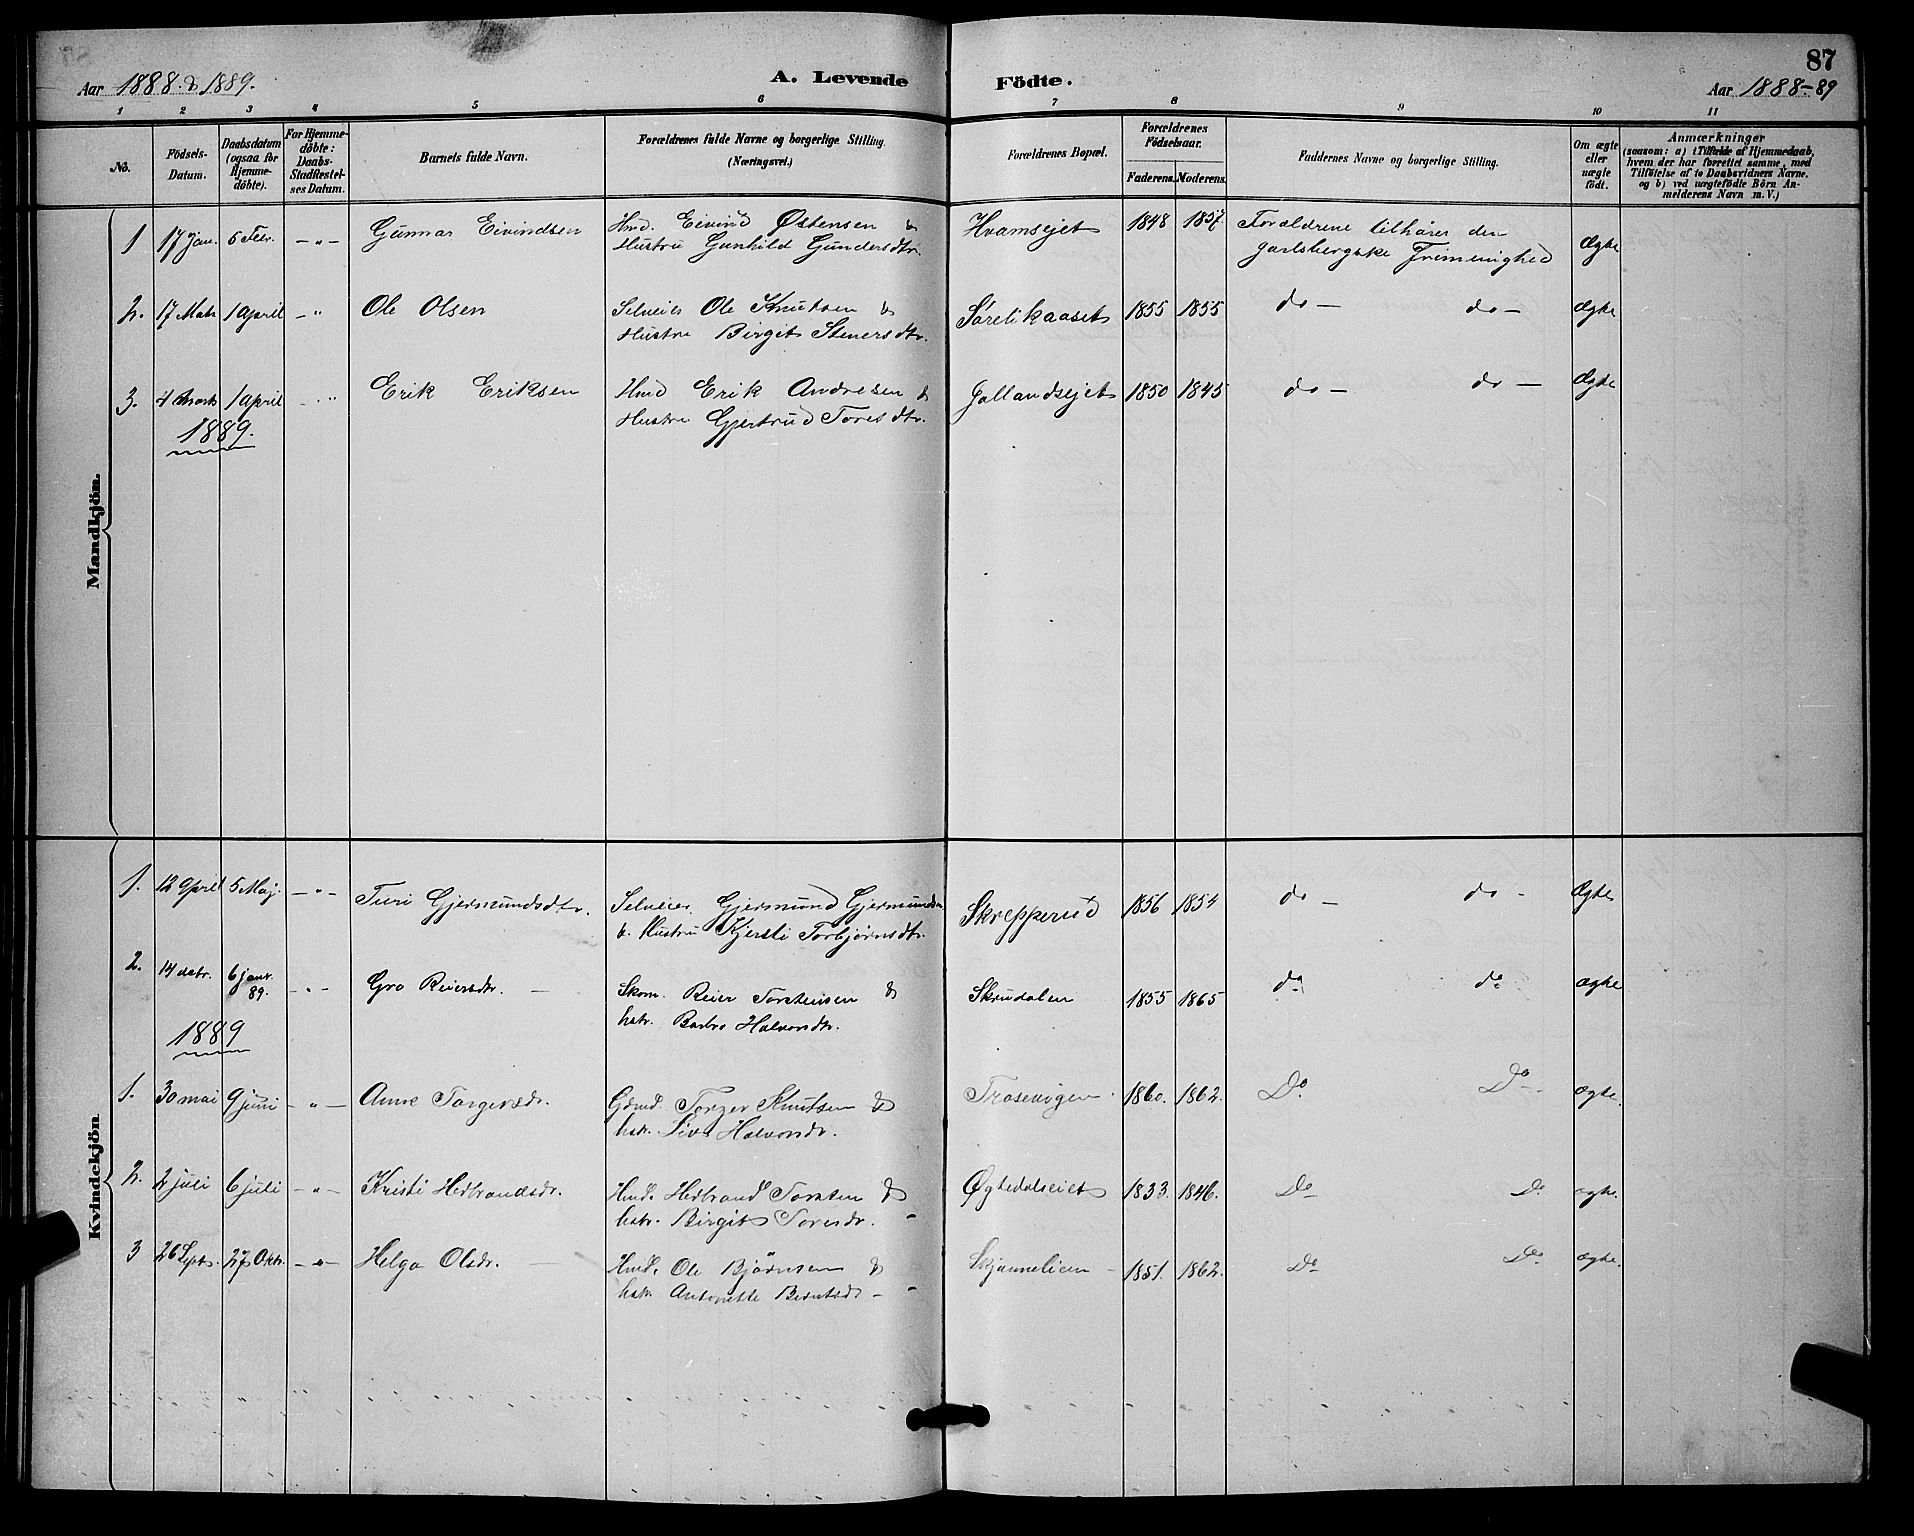 87
Aar 1888 & 1889. A. Levende Födte. Aar 1888-89
1 2 3 4 5 6 7 8 9 10 11
No. Födsels-Datum. Daabsdatum (ogsaa for Hjemme-döbte). For Hjemme-döbte: Daabs-Stadfæstel-ses Datum. Barnets fulde Navn. Forældrenes fulde Navne og borgerlige Stilling. (Næringsvei.) Forældrenes Bopæl. Forældrenes Födselsaar. Faderens. Moderens. Faddernes Navne og borgerlige Stilling. Om ægte eller uægte födt. Anmærkninger (saasom: a) i Tilfælde af Hjemmedaab, hvem der har forrettet samme, med Tilföielse af to Daabsvidners Navne, og b) ved uægtefödte Börn An-melderens Navn m. V.)
Mandkjön.
1 17 Jan. 5 Febr. - " - Gunnar Eivindsen Hmd. Eivind Østensen & Hvamsejet 1848 1857. Forældrene tilhører den Ægte
Hustru Gunhild Gundersdtr. Jarlsbergske Frimenighed
2. 17 Mats 1 April - " Ole Olsen Selveier Ole Knutsen & Sørelikaaset 1855 1855 do - do - Ægte
Hustru Birgit Stenersdtr.
3. 4 Marts 1 April " Erik Eriksen Hmd Erik Andresen & Jallandsejet 1850 1845 do - do - Ægte
Hustru Gjertrud Toresdtr.
1889.
Kvindekjön
1. 12 April 5 Maj. - " - Turi Gjermundsdtr. Selveier Gjermund Gjermundsen Skrepperud 1856 1854 do - do - Ægte
& Hustru Kjersti Torbjørnsdtr.
2. 14 debr. 6 janr. 89. - " - Gro Reiersdtr. - Skom. Reier Torstensen & Skrudalen 1855 1865 do do ægte
hstr. Barbro Halvorsdtr.
1889
1. 30 mai 9 juni - " - Anne Torgersdr. Gdmd. Torger Knutsen & Trosevigen 1860. 1862. Do. Do - ægte.
hstr. Siv Halvorsdr.
2. 2 juli 6 juli - " - Kristi Herbrandsdr. Hmd. Herbrand Torsten & 1833. 1846. Do Do ægte.
hstr. Birgit Toresdr. -
3 26 Septs. 27 Oktr. - " - Helga Olsdr. - Hmd. Ole Bjørnsen & Skjønnelien - 1851. 1862. Do Do. ægte.
hstr. Antonette Berntsdr - -